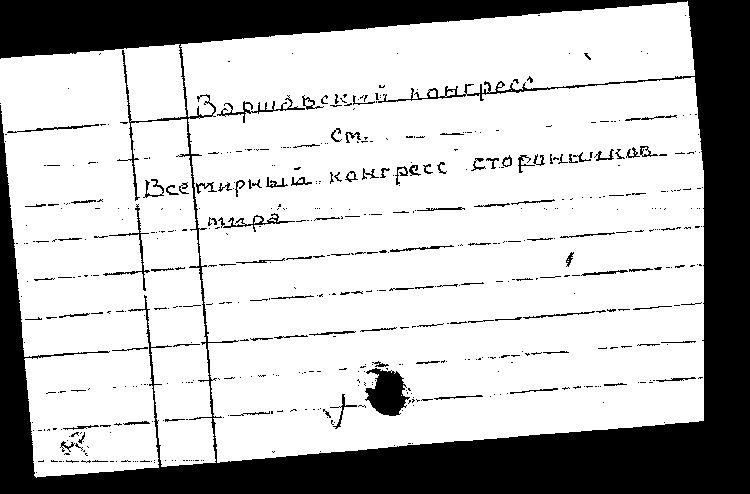 Варшавский конгресс
см.
Всемирный конгресс сторонников
мира